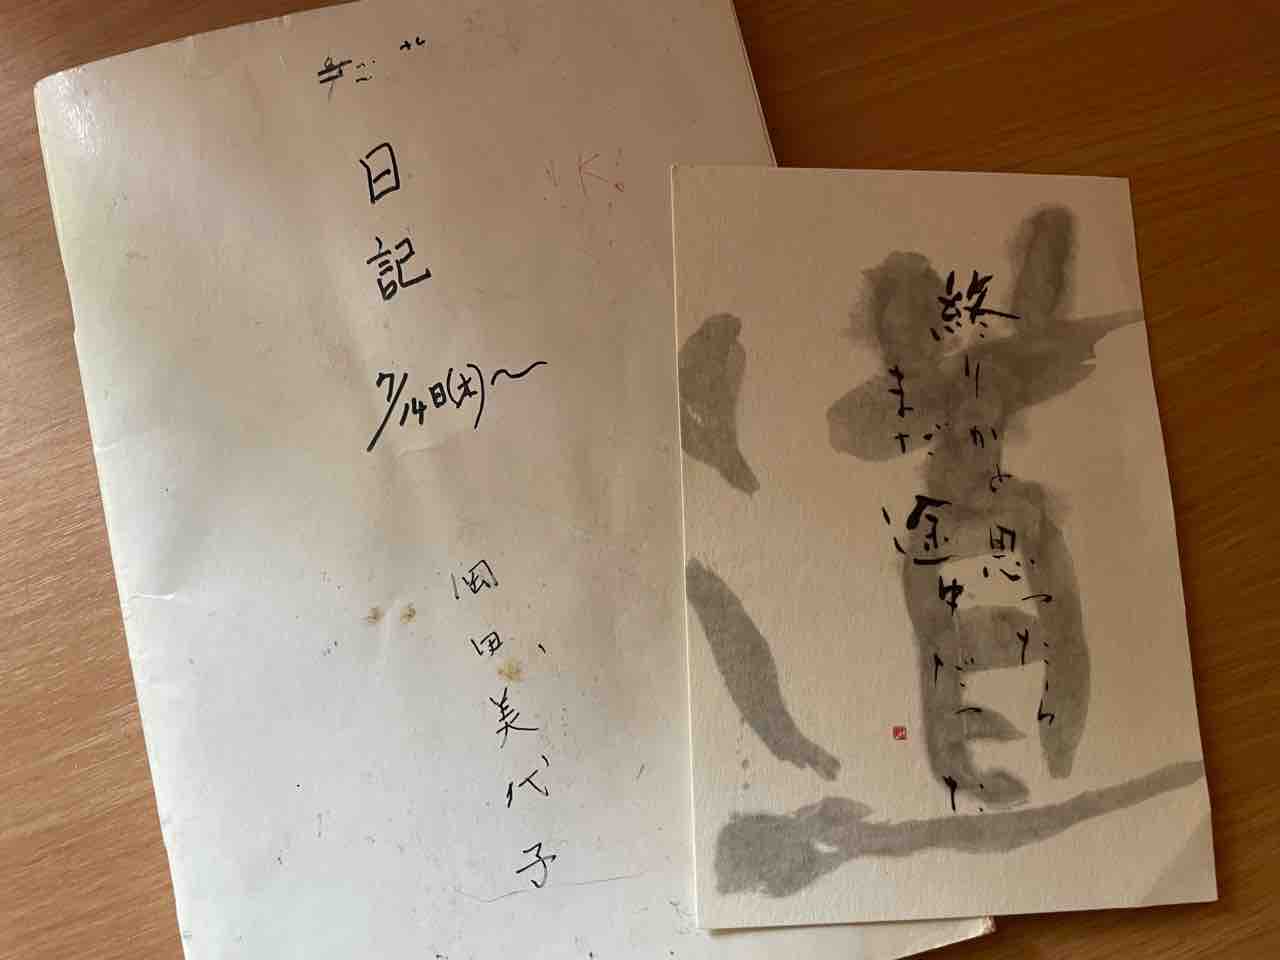 日記
7/14日(木)〜
岡田美代子
道
終りかと思ったら
まだ途中だった